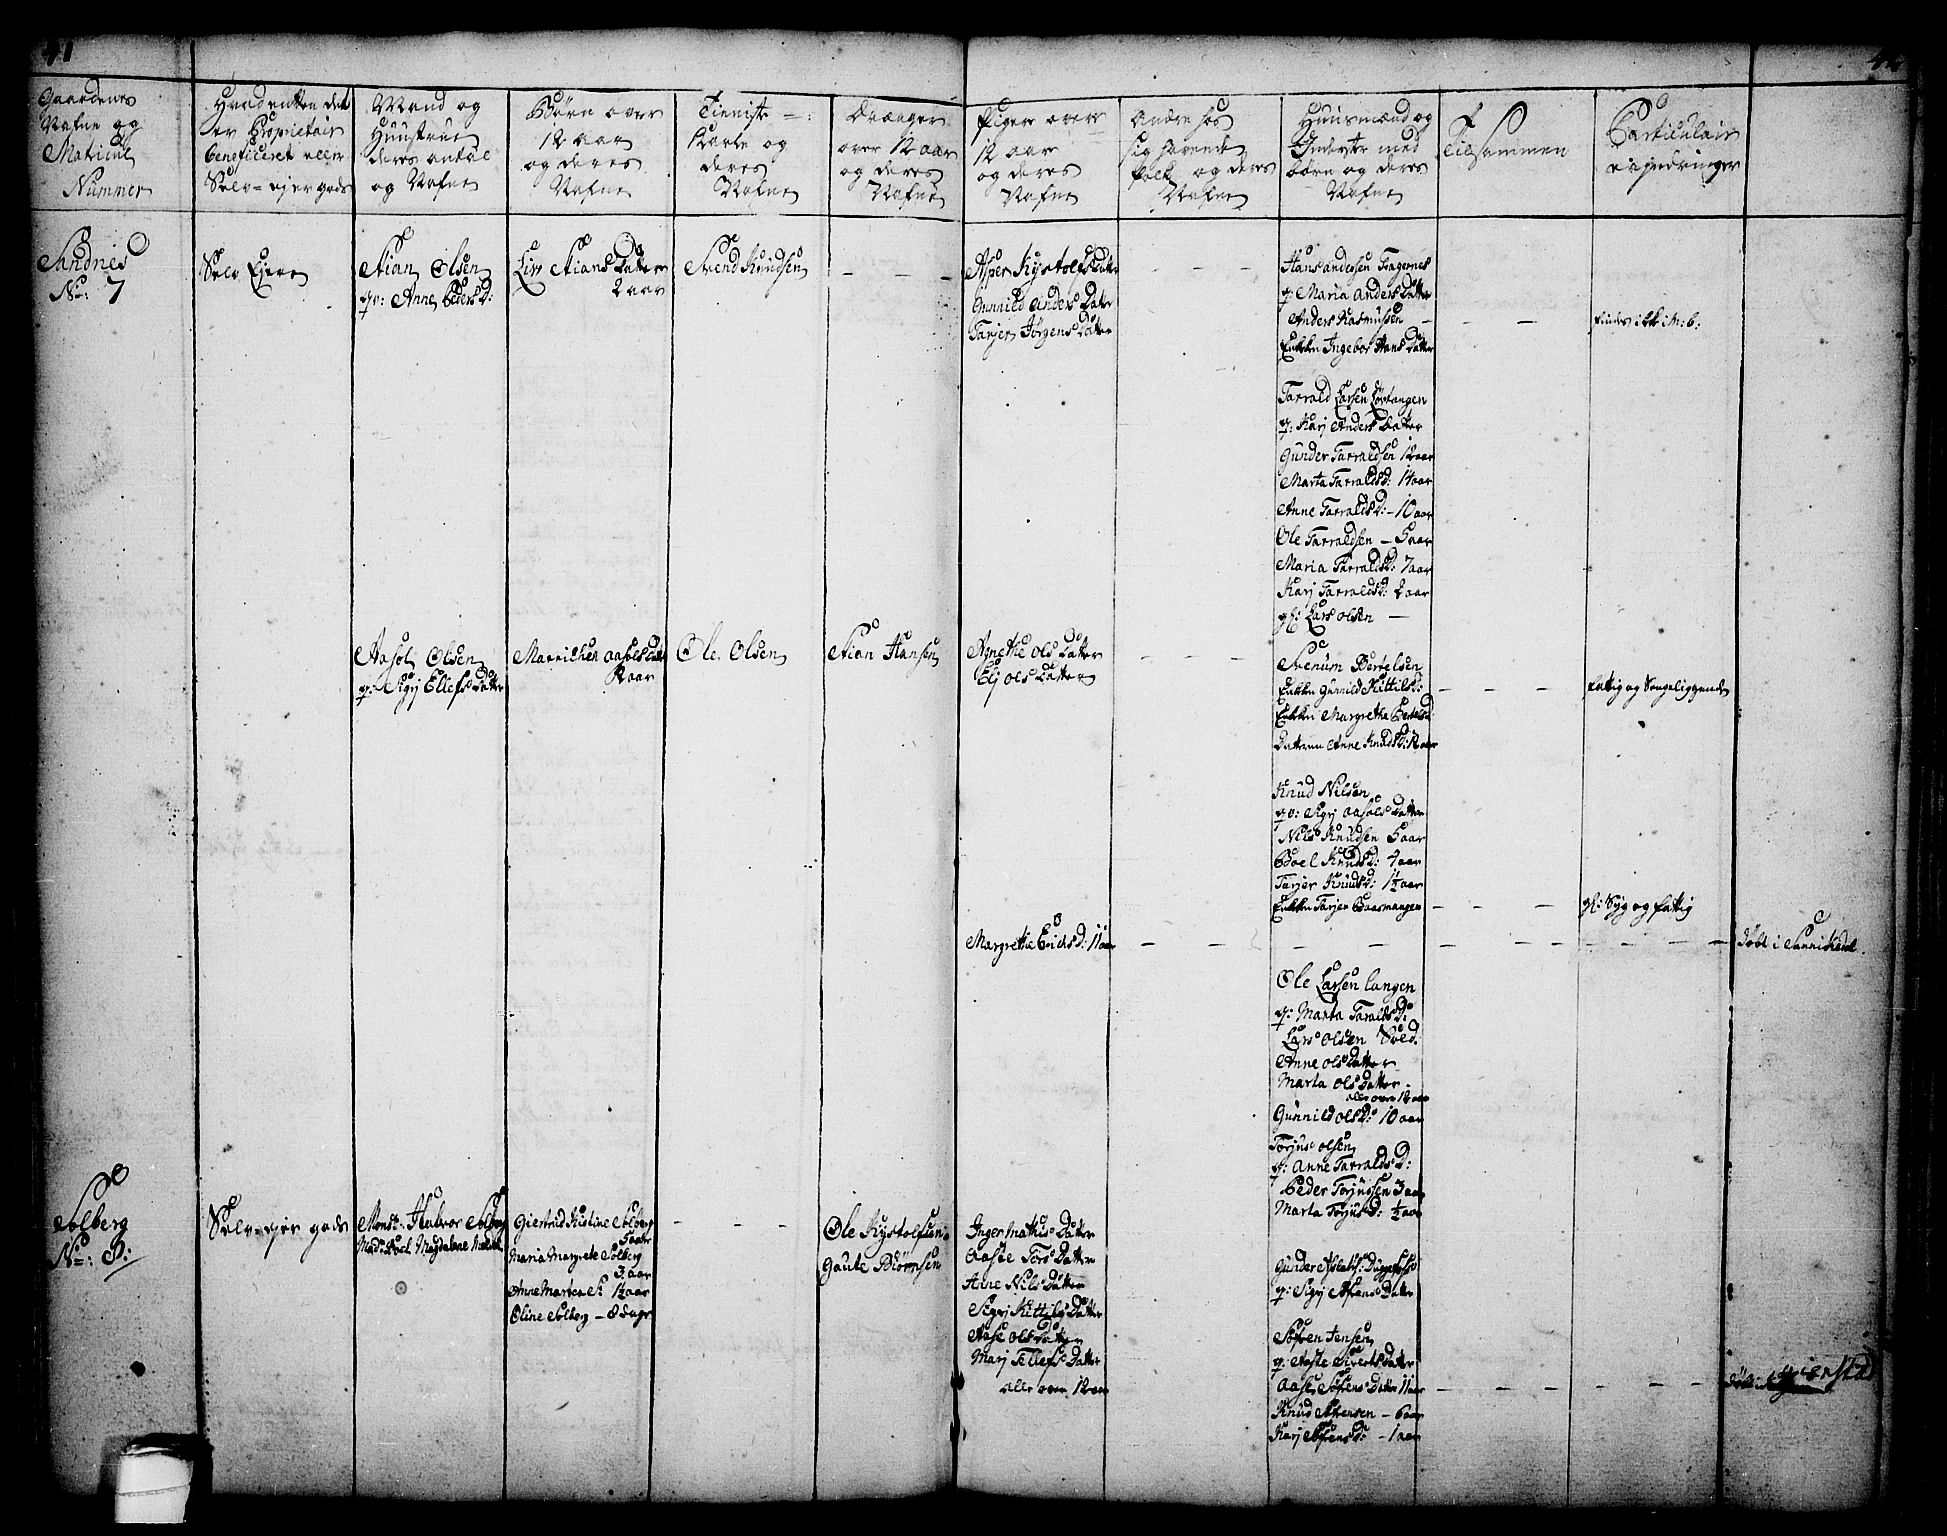 41
42
Gaardenes
Nafne og
Matricul
Nummer
Hvad enten det
er Proprietair
beneficeret eller
Selv-ejer gods
Mand og
Huustrue
deres antal
og Nafne
Børn over
12 aar
og deres
Nafne
Tieniste
Karle og
deres
Nafne
Drænger
over 12 aar
og deres
Nafne
Piger over
12 aar
og deres
Nafne
Andre hos
sig havende
folk og deres
Nafne
Huusmænd og
Inderste med
børn og deres
Nafne
Tilsammen
Particulair
Sandnes
No: 7
Selv Ejere
Stian Olsen
qv: Anne Peders D:
Liv Stians Datter
2 aar
Svend Knudsen
Asper Kystolfs Datter
Gunnild Anders Datter
Tarjer Jørgens Datter
Hans andersen Fagernes
q: Maria Anders Datter
Anders Rasmussen
Enkken Ingebor Hans Datter
findes ikk i M: b:
Tarrald Larsen Løvtangen
q: Karj Anders Datter
Gunder Tarraldsen 12 aar
Marta Tarralds D: 14 aar
Anne Tarralds D: - 10 aar
Ole Tarraldsen - 5 aar
Maria Tarralds D: 7 aar
Karj Tarralds D: 2 aar
Lars olsen
Aasol Olsen
q: Sigrj Ellefs Datter
Marrichen aasols Datter
12 aar
Ole Olsen
Stian Hansen
Agnethe ols Datter
Elj ols Datter
Svenum Bertelsen
Enkken Gunnild Kittils D:
Enkken Margretha Bertels D:
Datteren Anne Knuds D: 12 aar
fattig og Sengeliggende
Knud Nilsen
qv: Sigrj aasols Datter
Nils Knudsen 5 aar
Boel Knuds D: 4 aar
Tarjer Knuds D: 1½ aar
Enkken Tarjer Baasmangen
Syg og fattig
Margrethe Erichs D: 11 aar
født i Sannikedal.
Ole Larsen langen
q: Marta Taralds D:
Lars olsen Sold.
Anne ols Datter
Marta ols Datter
alle over 12 aar
Gunnild ols D: 10 aar
Torjus olsen
q: Anne Tarralds D:
Peder Torjussen 3 aar
Marta Torjus D: ½ aar
Solberg
No: 8:
Selv-ejer gods
Mons: Halvor Solberg
Mad: Magdalene
Giertrud Kistine Solberg
5 aar
Maria Margrete Solberg
3 aar
Anne Martea S: 1½ aar
Oline Solberg - 8 dage
Ole Kystolfsen
Gaute Biørnsen
Inger Mathis Datter
Aaste Tors Datter
Anne Nils Datter
Sigrj Kittils Datter
Aase Ols Datter
Marj Tellefs Datter
alle over 12 aar
Gunder
q: Sigrj Stians Datter
Søfren Jensen
q: Aaste Siverts Datter
Aase Søfrens Datter 11 aar
Knud Søfrensen - 6 aar
Karj Søfrens D: - 1 aar